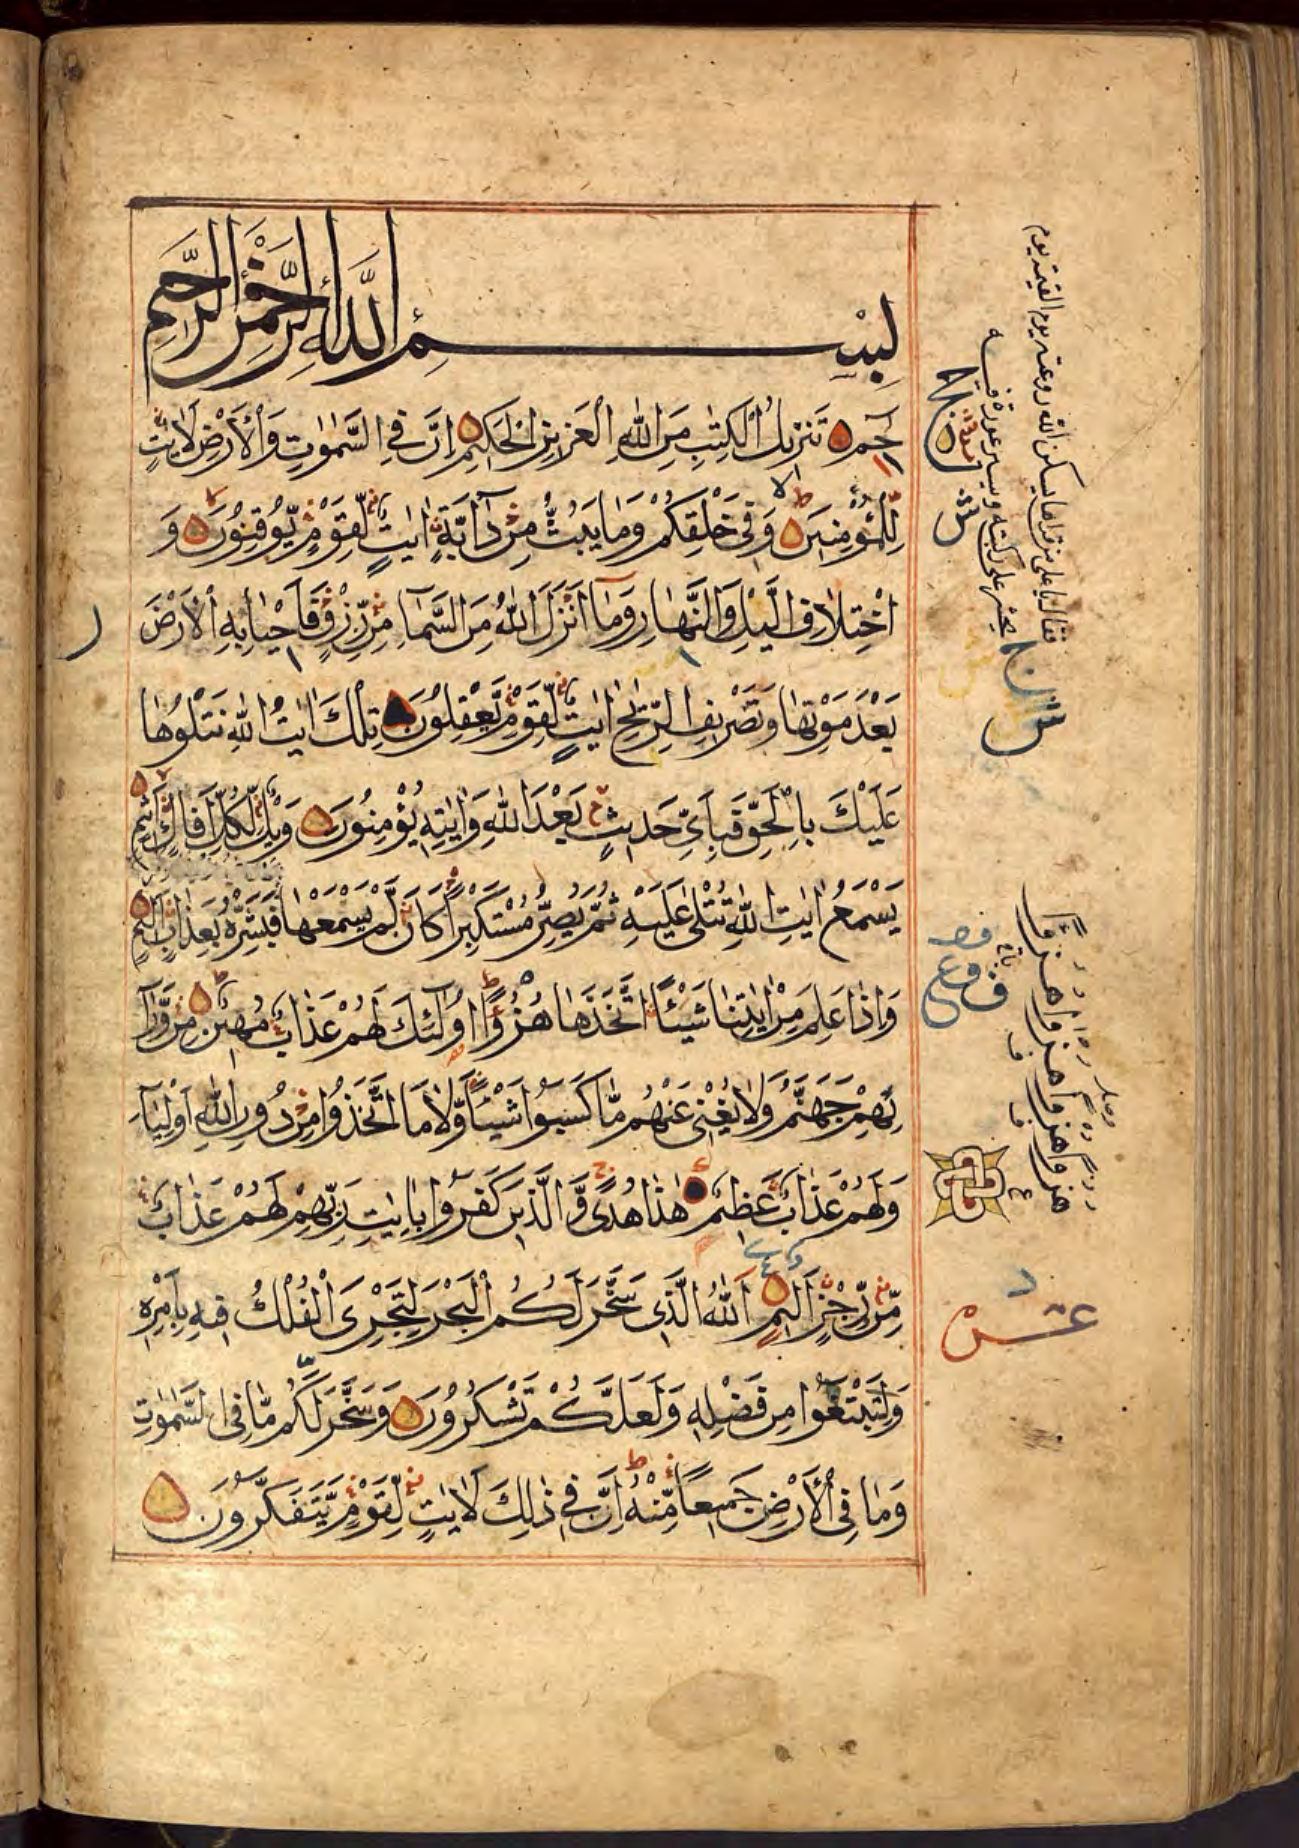 بِسْمِ اللَّهِ الرَّحْمٰنِ الرَّحِيمِ
حٰمٓ تَنْزِيلُ الْكِتٰبِ مِنَ اللهِ الْعَزِيزِ الْحَكِيمِ اِنَّ فِي السَّمٰوٰتِ وَالْأَرْضِ لَاٰيٰتٍ
لِلْمُؤْمِنِينَ وَفِي خَلْقِكُمْ وَمَا يَبُثُّ مِنْ دَآبَّةٍ اٰيٰتٌ لِقَوْمٍ يُّوقِنُونَ وَ
اخْتِلَافِ الَّيْلِ وَالنَّهَارِ وَمَا أَنْزَلَ اللهُ مِنَ السَّمَآءِ مِنْ رِزْقٍ فَاَحْيَا بِهِ الْأَرْضَ
بَعْدَ مَوْتِهَا وَتَصْرِيفِ الرِّيٰحِ اٰيٰتٌ لِّقَوْمٍ يَّعْقِلُونَ تِلْكَ اٰيٰتُ اللهِ نَتْلُوهَا
عَلَيْكَ بِالْحَقِّ فَبِاَيِّ حَدِيثٍ بَعْدَ اللهِ وَاٰيٰتِهِ يُؤْمِنُونَ وَيْلٌ لِّكُلِّ اَفَّاكٍ اَثِيمٍ
يَسْمَعُ اٰيٰتِ اللهِ تُتْلٰى عَلَيْهِ ثُمَّ يُصِرُّ مُسْتَكْبِرًا كَاَنْ لَّمْ يَسْمَعْهَا فَبَشِّرْهُ بِعَذَابٍ اَلِيمٍ
وَاِذَا عَلِمَ مِنْ اٰيٰتِنَا شَيْـًٔا اتَّخَذَهَا هُزُوًا اُولٰٓئِكَ لَهُمْ عَذَابٌ مُهِينٌ مِنْ وَّرَآ
ئِهِمْ جَهَنَّمُ وَلَا يُغْنِي عَنْهُمْ مَّا كَسَبُوا شَيْـًٔا وَّلَا مَا اتَّخَذُوا مِنْ دُونِ اللهِ اَوْلِيَآءَ
وَلَهُمْ عَذَابٌ عَظِيمٌ هٰذَا هُدًى وَّالَّذِينَ كَفَرُوا بِاٰيٰتِ رَبِّهِمْ لَهُمْ عَذَابٌ
مِّنْ رِّجْزٍ اَلِيمٌ اَللهُ الَّذِي سَخَّرَ لَكُمُ الْبَحْرَ لِتَجْرِيَ الْفُلْكُ فِيهِ بِاَمْرِهِ
وَلِتَبْتَغُوا مِنْ فَضْلِهِ وَلَعَلَّكُمْ تَشْكُرُونَ وَسَخَّرَ لَكُمْ مَّا فِي السَّمٰوٰتِ
وَمَا فِي الْأَرْضِ جَمِيعًا مِّنْهُ اِنَّ فِي ذٰلِكَ لَاٰيٰتٍ لِّقَوْمٍ يَّتَفَكَّرُونَ
هزوا هزوا هزوا هزوا
عشر